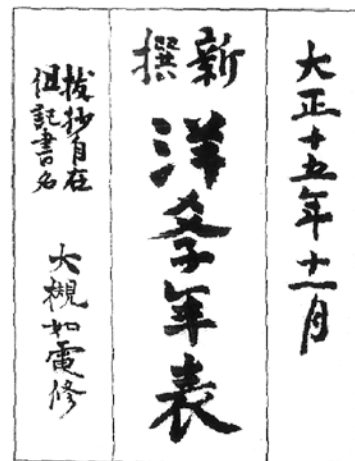 大正十五年十一月
新撰
洋学年表
抜抄自在
但記書名
大槻如電修